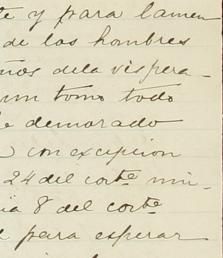 y para lamen
de los hombres
ños dela vispera
un tomo todo
demorado
con excepcion
24 del corte mi-
8 del corte
para esperar